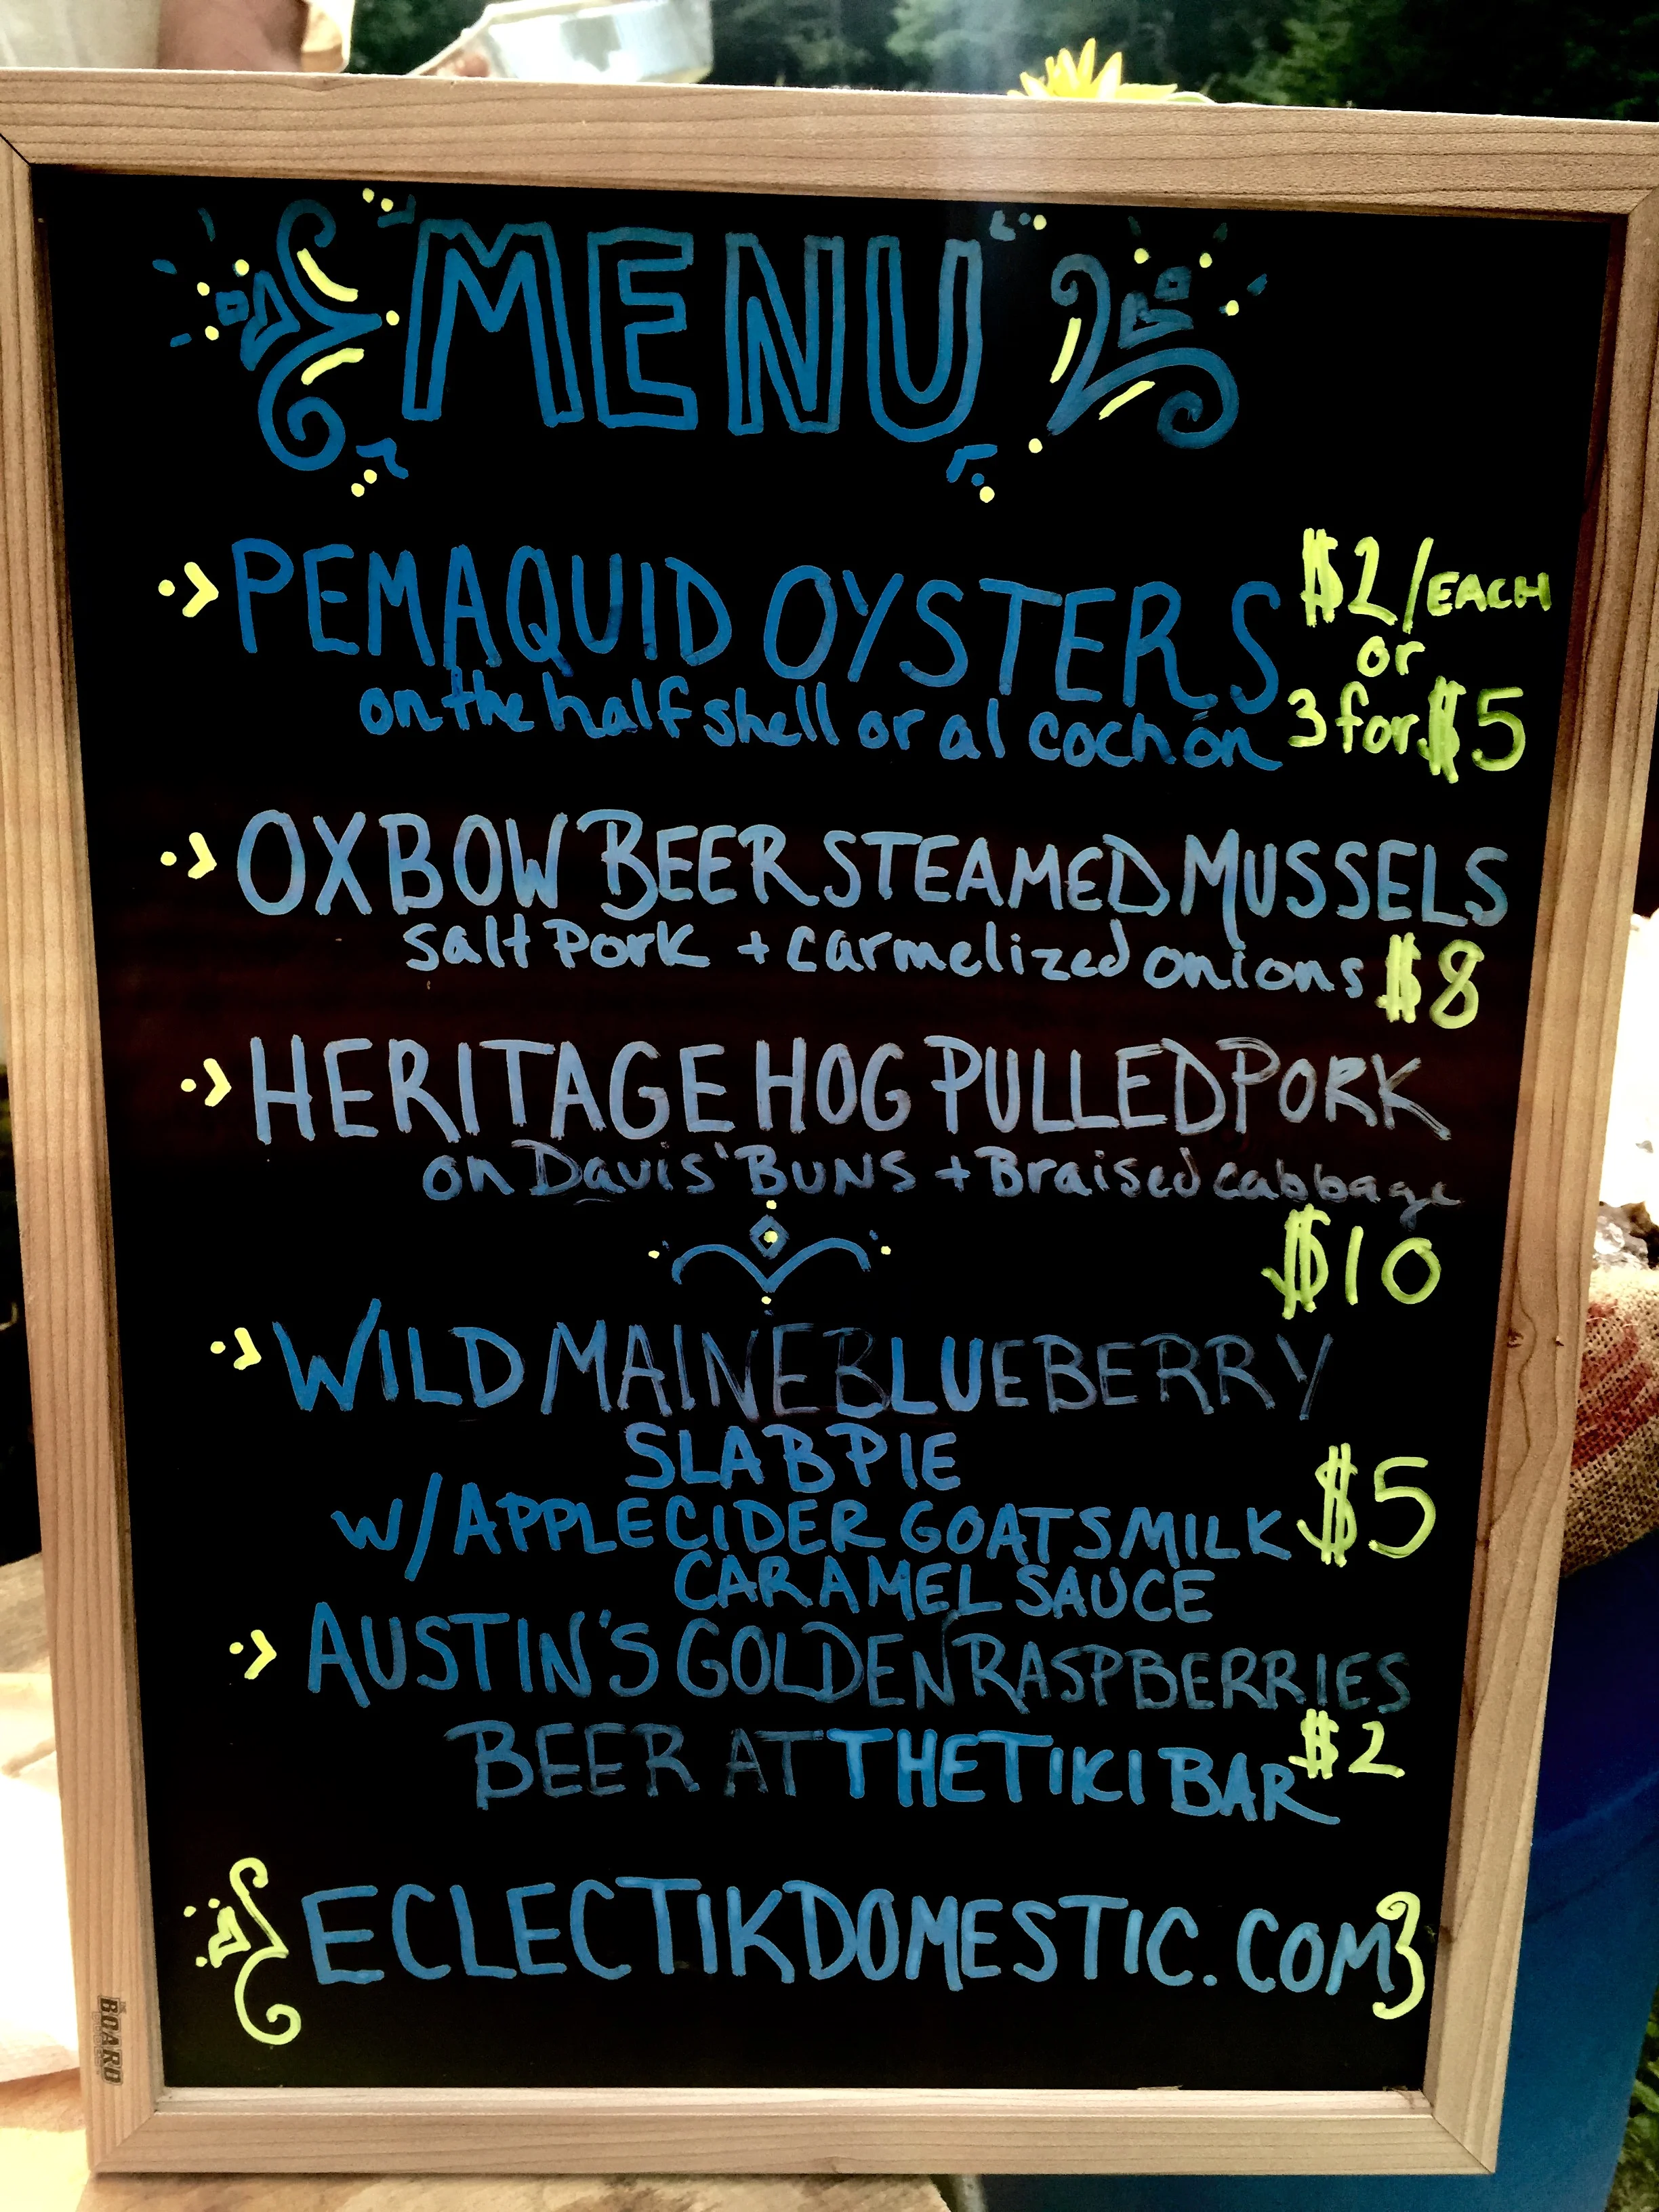 MENU
PEMAQUID OYSTERS $2/EACH
or
on the half shell or al cochón 3 for $5
OXBOW BEER STEAMED MUSSELS
salt Pork + carmelized onions $8
HERITAGE HOG PULLED PORK
on Davis' BUNS + Braised cabbage
$10
WILD MAINE BLUEBERRY
SLAB PIE
w/ APPLE CIDER GOATS MILK $5
CARAMEL SAUCE
AUSTIN'S GOLDEN RASPBERRIES
$2
BEER AT THE TIKI BAR
ECLECTIKDOMESTIC.COM
BOARD